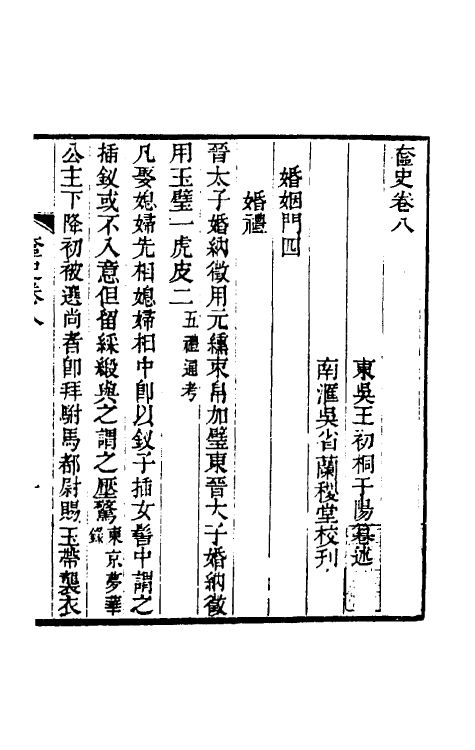 奩史卷八
東吳王初桐于陽纂述
南滙吳省蘭稷堂校刊
婚姻門四
婚禮
晉太子婚納徵用元纁束帛加璧東晉太子婚納徵
用玉璧一虎皮二五禮通考
凡娶媳婦先相媳婦相中卽以釵子插女髻中謂之
插釵或不入意但留綵緞與之謂之壓驚東京夢華錄
公主下降初被選尚者卽拜駙馬都尉賜玉帶襲衣
奩史卷八
一